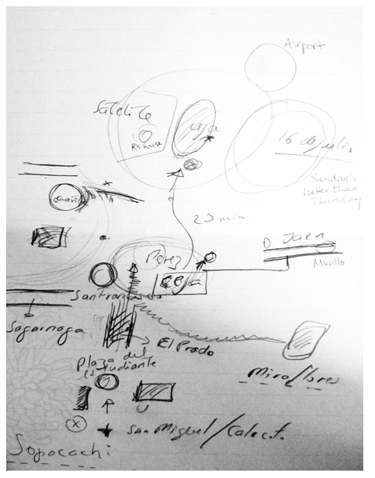 Airport
Satélite
R's house
ceja
16 de julio
Sunday's
better than
Thursday
20 min
Perez
ceja
D. Jaen
Murillo
San Francisco
Sagarnaga
El Prado
Plaza del
estudiante
Miraflores
San Miguel/Calacot.
Sopocachi